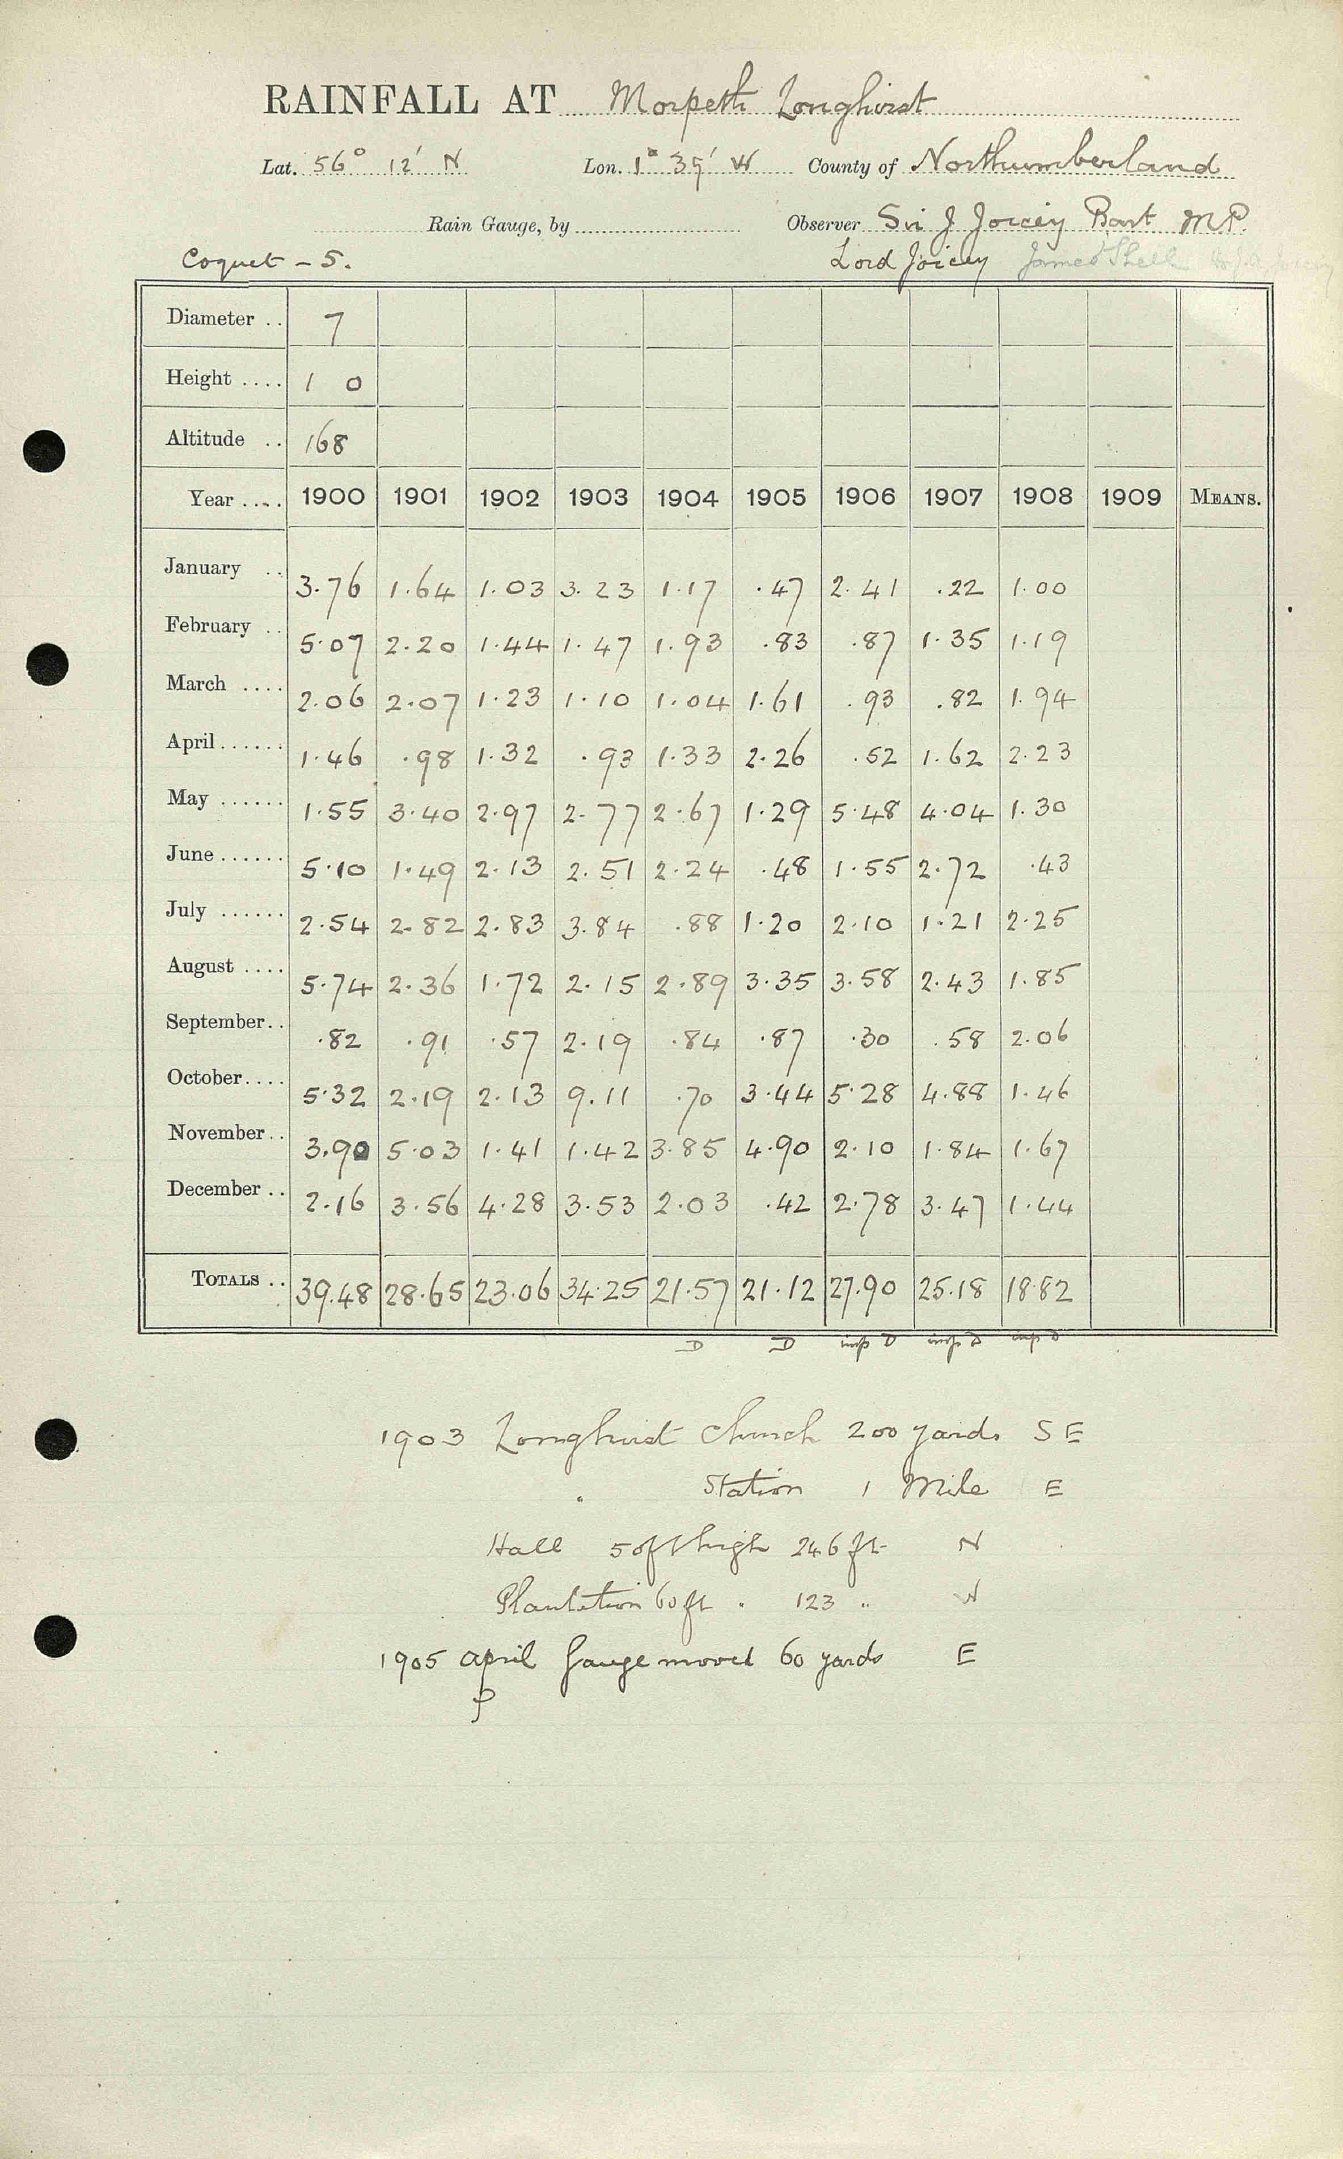 RAINFALL AT Morpeth Longhirst
Lat. 56° 12' N Lon. 1° 39' W County of Northumberland
Rain Gauge, by Observer Sir J Joicey Bart M.P.
Coquet - 5. Lord Joicey James Shell
Diameter .. 7
Height .... 1 0
Altitude .. 168
Year .... 1900 1901 1902 1903 1904 1905 1906 1907 1908 1909 MEANS.
January .. 3.76 1.64 1.03 3.23 1.17 .47 2.41 .22 1.00
February .. 5.07 2.20 1.44 1.47 1.93 .83 .87 1.35 1.19
March .... 2.06 2.07 1.23 1.10 1.04 1.61 .93 .82 1.94
April ...... 1.46 .98 1.32 .93 1.33 2.26 .52 1.62 2.23
May ...... 1.55 3.40 2.97 2.77 2.67 1.29 5.48 4.04 1.30
June ...... 5.10 1.49 2.13 2.51 2.24 .48 1.55 2.72 .43
July ...... 2.54 2.82 2.83 3.84 .88 1.20 2.10 1.21 2.25
August .... 5.74 2.36 1.72 2.15 2.89 3.35 3.58 2.43 1.85
September .. .82 .91 .57 2.19 .84 .87 .30 .58 2.06
October .... 5.32 2.19 2.13 9.11 .70 3.44 5.28 4.88 1.46
November .. 3.90 5.03 1.41 1.42 3.85 4.90 2.10 1.84 1.67
December .. 2.16 3.56 4.28 3.53 2.03 .42 2.78 3.47 1.44
TOTALS .. 39.48 28.65 23.06 34.25 21.57 21.12 27.90 25.18 18.82
D D insp D insp D insp D
1903 Longhirst Church 200 yards S E
" Station 1 Mile E
Hall 50ft high 246 ft N
Plantation 60 ft " 123 " W
1905 April Gauge moved 60 yards E
P